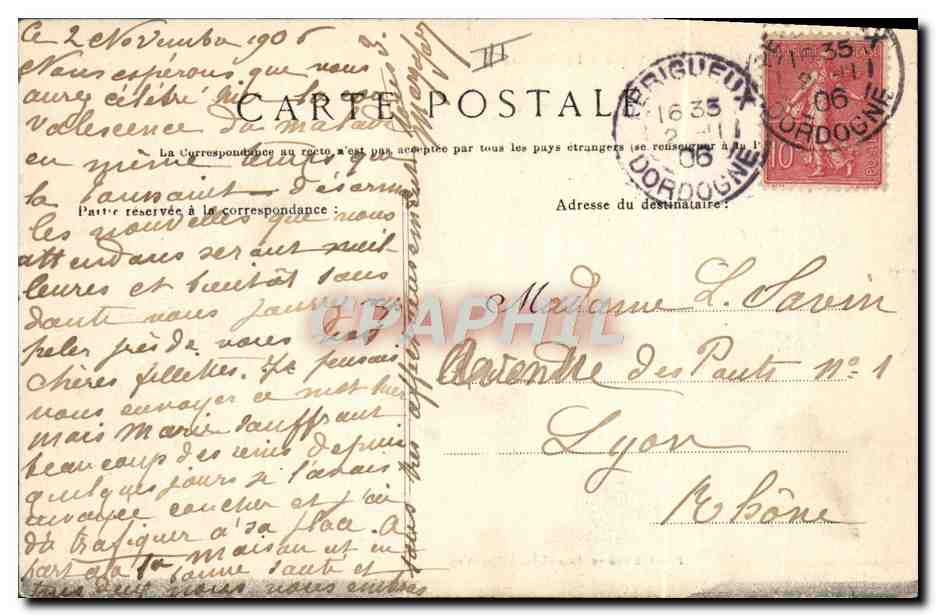 Ce 2 Novembre 1906
Nous espérons que vous
aurez célébré la con
valescence du malade
en même temps que
la Toussaint. Désorma
les nouvelles que nous
attendons seront meil
leures et bientôt sans
doute vous pourrez
peler près de vous les
chères fillettes. Je pensais
vous envoyer ce mot hier
mais Marie souffrant
beaucoup des reins depuis
quelques jours je l'avais
envoyée coucher et j'ai
dû trafiquer à sa place. A
part ça la maison est en
bonne santé et
tous deux nous vous embras
sons très affectueusement
III
CARTE POSTALE
La Correspondance au recto n'est pas acceptée par tous les pays étrangers (se renseigner à la P
Partie réservée à la correspondance :
Adresse du destinataire :
PERIGUEUX
16 35
2 - 11
06
DORDOGNE
35
06
DORDOGNE
10
CPAPHIL
Madame L. Savin
Avenue des Ponts No 1
Lyon
Rhône